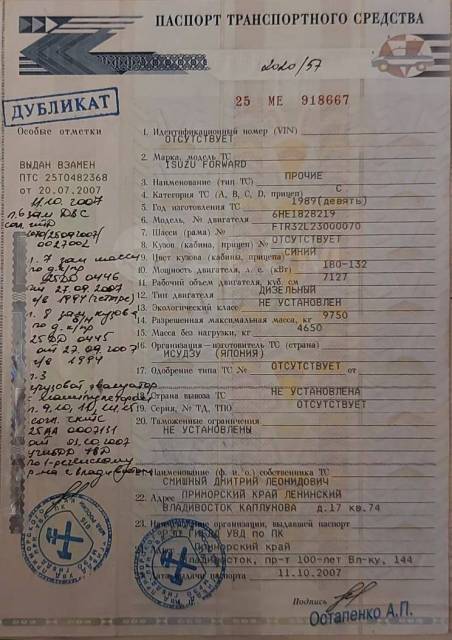 ПАСПОРТ ТРАНСПОРТНОГО СРЕДСТВА
2020/57
25 МЕ 918667
ДУБЛИКАТ
Особые отметки
ВЫДАН ВЗАМЕН
ПТС 25ТО482368
от 20.07.2007
11.10.2007
п.6 зам ДВС
п. 7 зам шасси
25ДД 0446
от 27.09.2007
п. 8 зам кузова
25ДД 0445
от 27.09.2007
п.3
грузовой эвакуатор
25АА 0007151
от 01.10.2007
1. Идентификационный номер (VIN)
ОТСУТСТВУЕТ
2. Марка, модель ТС
ISUZU FORWARD
3. Наименование (тип ТС) ПРОЧИЕ
4. Категория ТС (А, В, С, D, прицеп) С
5. Год изготовления ТС 1989(девять)
6. Модель, № двигателя 6HE1828219
7. Шасси (рама) № FTR32L23000070
8. Кузов (кабина, прицеп) № ОТСУТСТВУЕТ
9. Цвет кузова (кабины, прицепа) СИНИЙ
10. Мощность двигателя, л. с. (кВт) 180-132
11. Рабочий объем двигателя, куб. см 7127
12. Тип двигателя ДИЗЕЛЬНЫЙ
13. Экологический класс НЕ УСТАНОВЛЕН
14. Разрешенная максимальная масса, кг 9750
15. Масса без нагрузки, кг 4650
16. Организация–изготовитель ТС (страна)
ИСУДЗУ (ЯПОНИЯ)
17. Одобрение типа ТС № ОТСУТСТВУЕТ от
18. Страна вывоза ТС НЕ УСТАНОВЛЕНА
19. Серия, № ТД, ТПО ОТСУТСТВУЕТ
20. Таможенные ограничения
НЕ УСТАНОВЛЕНЫ
21. Наименование (ф. и. о.) собственника ТС
СМИШНЫЙ ДМИТРИЙ ЛЕОНИДОВИЧ
22. Адрес ПРИМОРСКИЙ КРАЙ ЛЕНИНСКИЙ
ВЛАДИВОСТОК КАПЛУНОВА д.17 кв.74
23. Наименование организации, выдавшей паспорт
УВД по ПК
Приморский край
Владивосток, пр-т 100-лет Вл-ку, 144
Дата выдачи паспорта 11.10.2007
Подпись
Остапенко А.П.